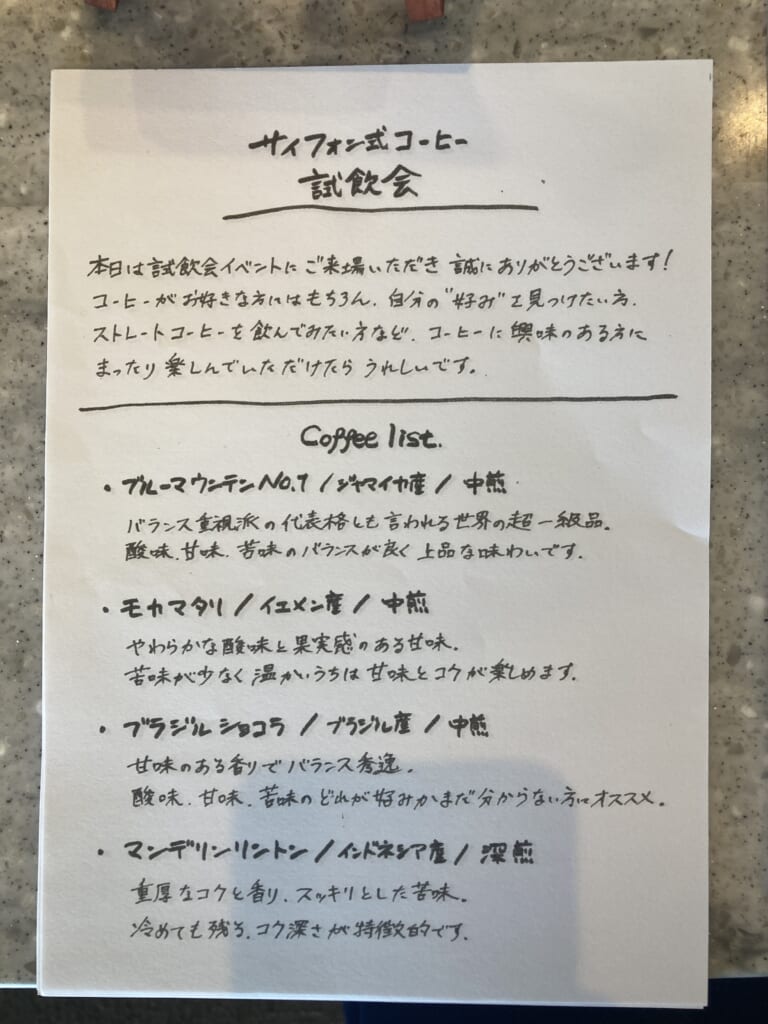 サイフォン式コーヒー
試飲会
本日は試飲会イベントにご来場いただき 誠にありがとうございます!
コーヒーがお好きな方にはもちろん、自分の"好み"を見つけたい方、
ストレートコーヒーを飲んでみたい方など、コーヒーに興味のある方に
まったり楽しんでいただけたら うれしいです。
Coffee list.
・ブルーマウンテンNo.1 / ジャマイカ産 / 中煎
バランス重視派の代表格とも言われる世界の超一級品。
酸味、甘味、苦味のバランスが良く上品な味わいです。
・モカマタリ / イエメン産 / 中煎
やわらかな酸味と果実感のある甘味。
苦味が少なく温かいうちは甘味とコクが楽しめます。
・ブラジルショコラ / ブラジル産 / 中煎
甘味のある香りでバランス秀逸。
酸味、甘味、苦味のどれが好みかまだ分からない方にオススメ。
・マンデリンリントン / インドネシア産 / 深煎
重厚なコクと香り、スッキリとした苦味。
冷めても残る、コク深さが特徴的です。